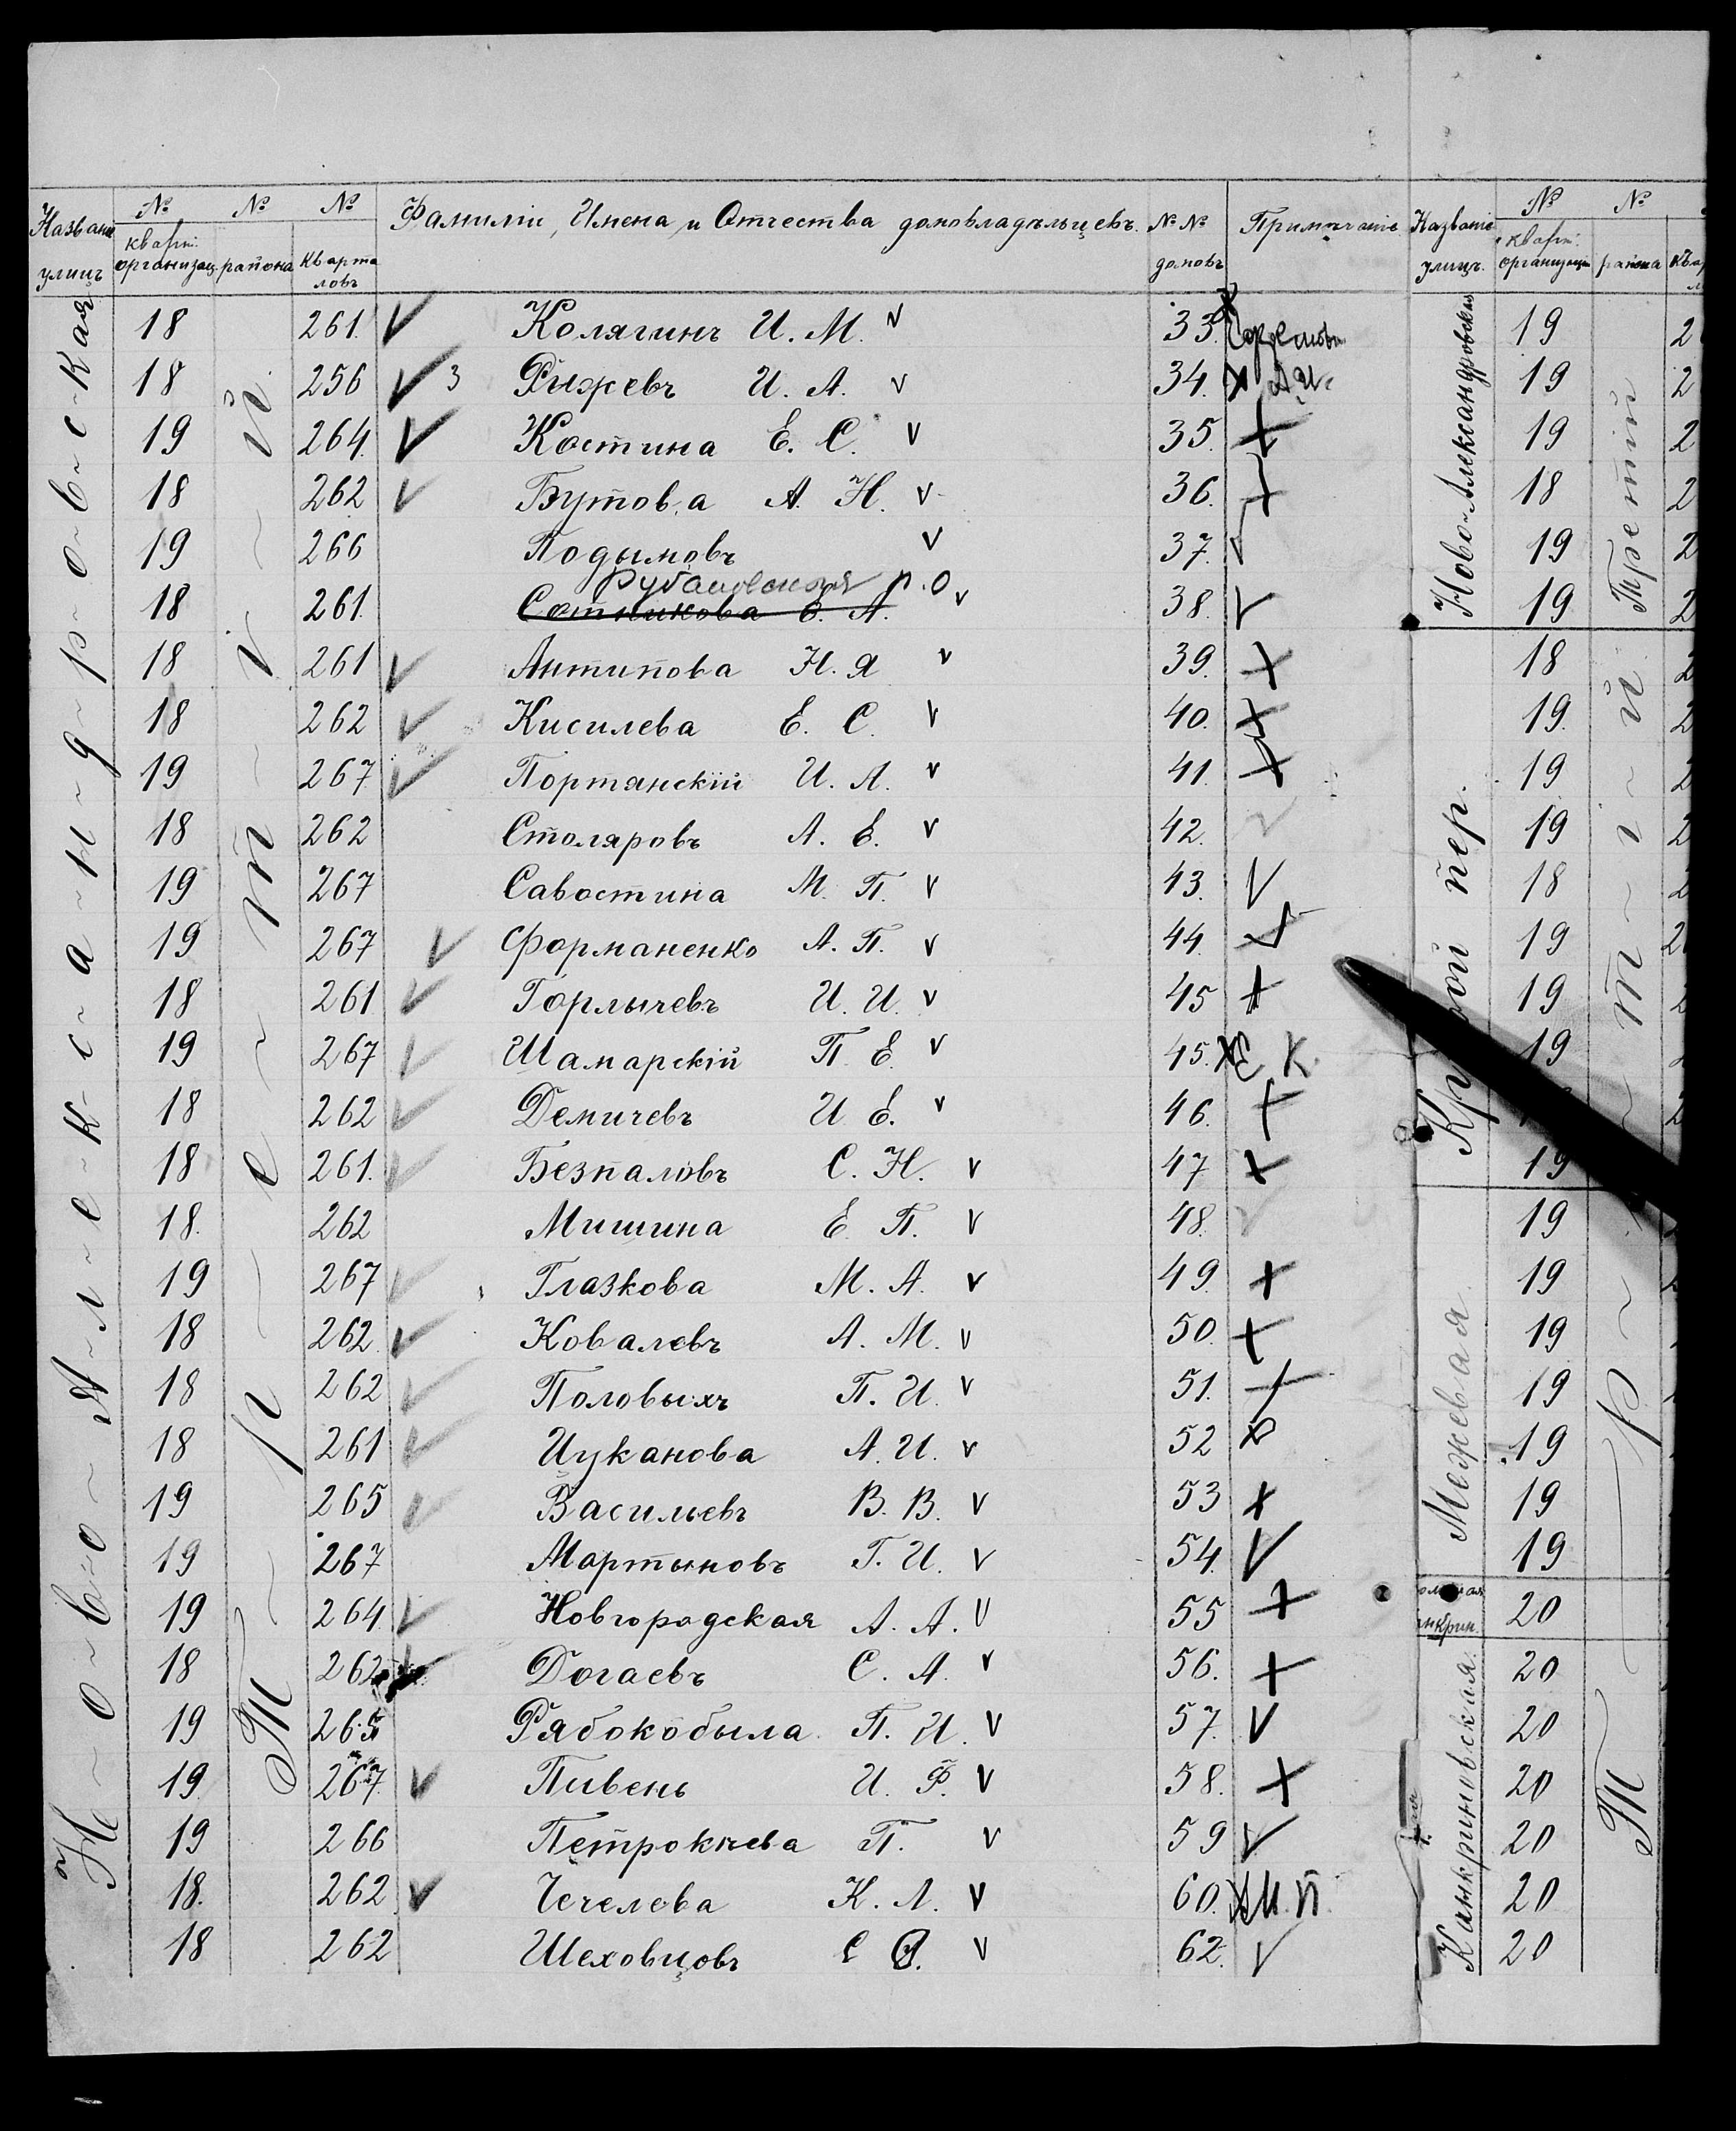 Название улицъ № кварт. организац. № района № Кварталовъ Фамиліи, Имена и Отчества домовладѣльцевъ. №№ домовъ Примѣчаніе
Ново-Александровская
Третій
18 261. Колягинъ И. М. 33.
18 256 3 Рыжевъ И. А. 34.
19 264. Костина Е. С. 35.
18 262 Бутова А. Н. 36.
19 266 Подымовъ 37.
18 261. Рубановская Р. О Сотникова Е. А. 38.
18 261 Антипова Н. Я 39.
18 262 Кисилева Е. С. 40.
19 267 Портянскій И. А. 41.
18 262 Столяровъ А. Е. 42.
19 267 Савостина М. П. 43.
19 267 Форманенко А. П. 44.
18 261 Горлычевъ И. И. 45
19 267 Шамарскій П. Е. 45. Е К.
18 262 Демичевъ И Е. 46.
18 261. Безпаловъ С. Н. 47
18. 262 Мишина Е. П. 48.
19 267 Глазкова М. А. 49.
18 262. Ковалевъ А. М. 50.
18 262 Половыхъ П. И. 51.
18 261 Цуканова А. И. 52
19 265 Васильевъ В. В. 53
19 267 Мартыновъ Г. И. 54.
19 264. Новгородская А. А. 55
18 262 Догаевъ С. А. 56.
19 265 Рябокобыла П. И. 57.
19. 267. Пивень И. Ф. 58.
19 266 Петрокиева П. 59
18. 262 Чечелева К. Л. 60. М. П.
18 262 Шеховцовъ С 62.
Названіе улицъ. № кварт. организаціи № района
Ново-Александровская
Третій
19
19
19
18
19
19
пер.
Третій
18
19.
19
19
18
19
19
19
19
Межевая
19
19
19
19
19
19
19
20
Канкриновская.
20
20
20
20
20
20